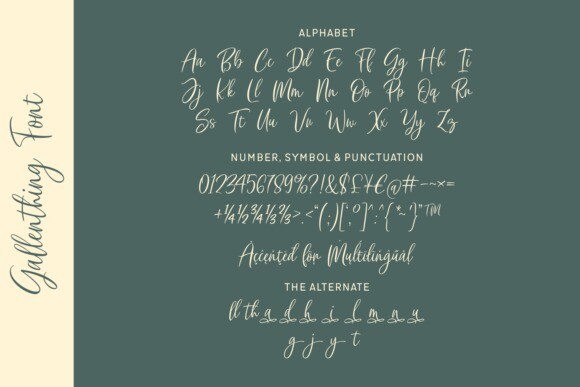 Gallenthing Font
ALPHABET
Aa Bb Cc Dd Ee Ff Gg Hh Ii
Jj Kk Ll Mm Nn Oo Pp Qq Rr
Ss Tt Uu Vv Ww Xx Yy Zz
NUMBER, SYMBOL & PUNCTUATION
0123456789%?!&$£¥€@#-~×=
+¼½¾⅓⅔>.<“(;)[‚º]^:^{*~'}”™
Açcęntėd för Mułtilińgüåł
THE ALTERNATE
ll th a d h i l m n u
g j y t